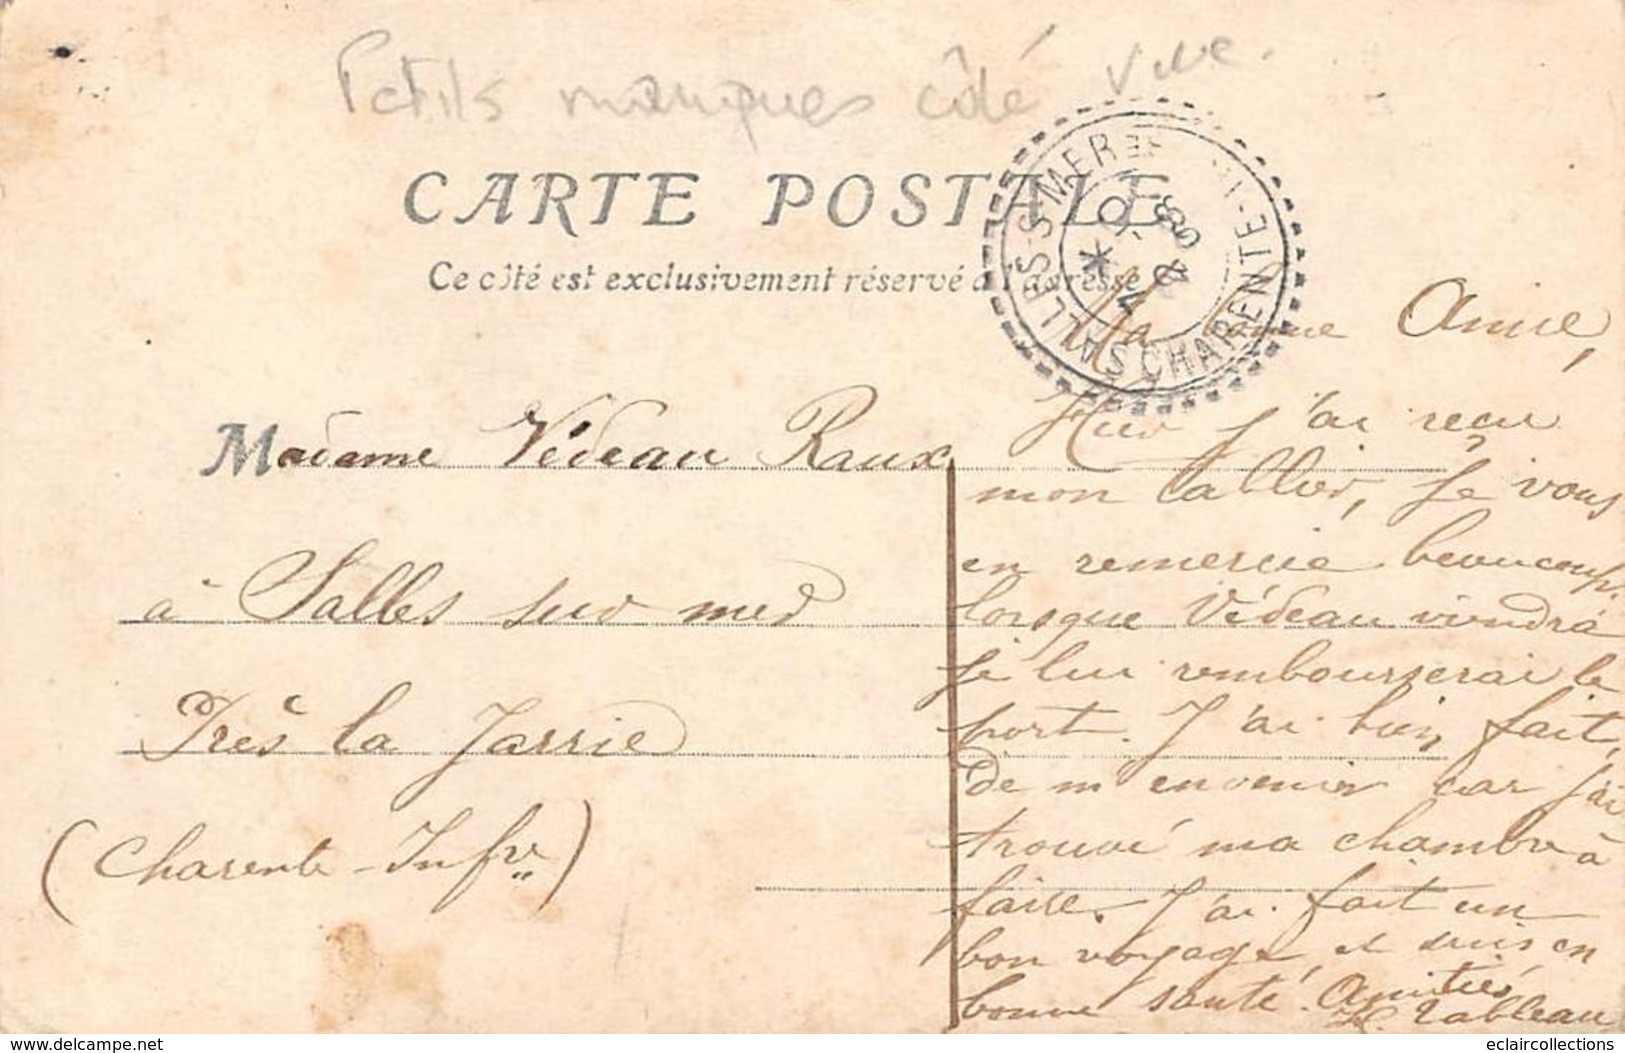 Petits manques côté vue.
CARTE POSTALE
Ce côté est exclusivement réservé à l'adresse
SALLES-S-MER
CHARENTE-INF
Ma bonne Amie,
Hier j'ai reçu
mon tablier, je vous
en remercie beaucoup.
lorsque Védeau viendra
je lui rembourserai le
port. J'ai bien fait,
de m'envenir car j'ai
trouvé ma chambre à
faire. J'ai fait un
bon voyage, et suis en
bonne santé. Amitiés
H. Tableau
Madame Védeau Raux
à Salles sur mer
Près la Jarrie
(Charente-Infre)
www.delcampe.net
eclaircollections